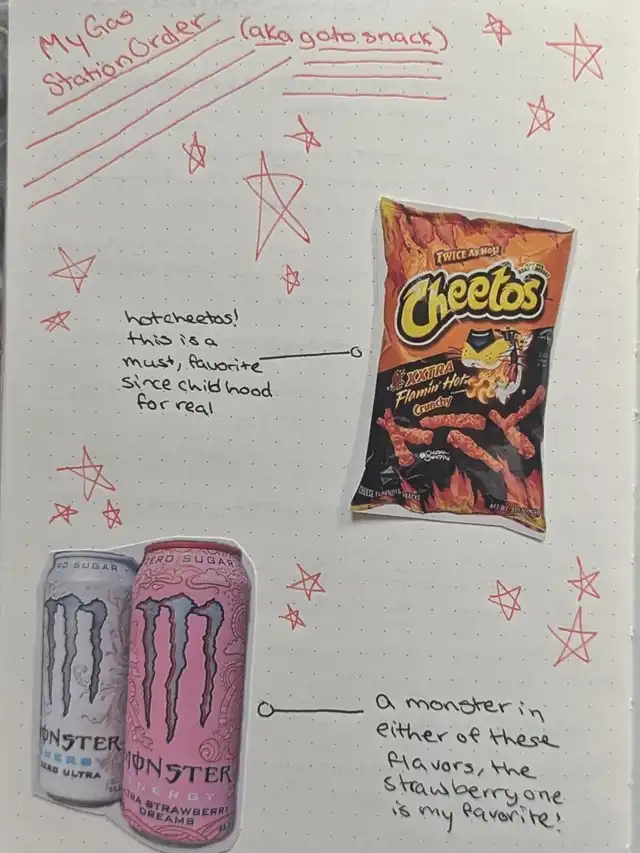 My Gas
Station Order
(aka go to snack)
TWICE AS HOT!
Cheetos
XXTRA
Flamin' Hot
Crunchy
CHEESE FLAVORED SNACKS
hot cheetos!
this is a
must, favorite
since childhood
for real
ZERO SUGAR
MONSTER
ENERGY
ZERO ULTRA
ZERO SUGAR
MONSTER
ENERGY
ULTRA STRAWBERRY
DREAMS
a monster in
either of these
flavors, the
strawberry one
is my favorite!